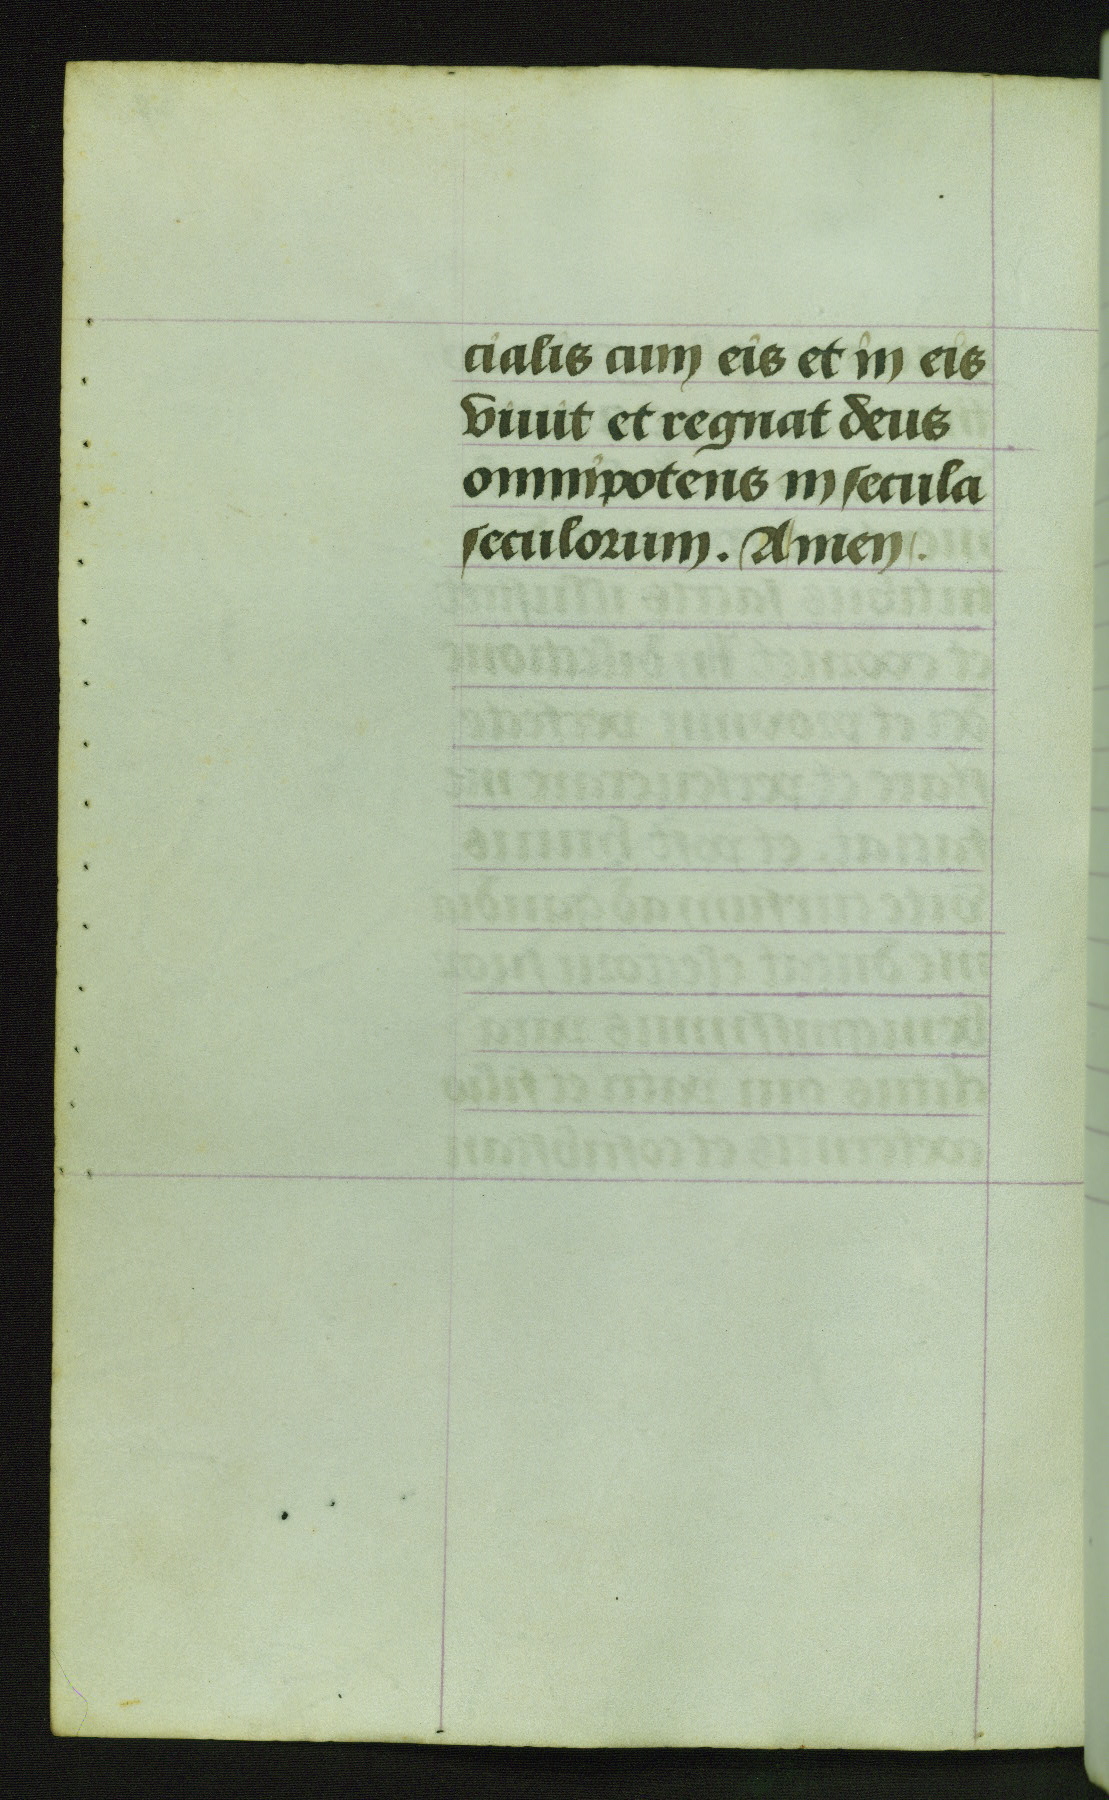 cialis cum eis et in eis
viuit et regnat deus
omnipotens in secula
seculorum. Amen.